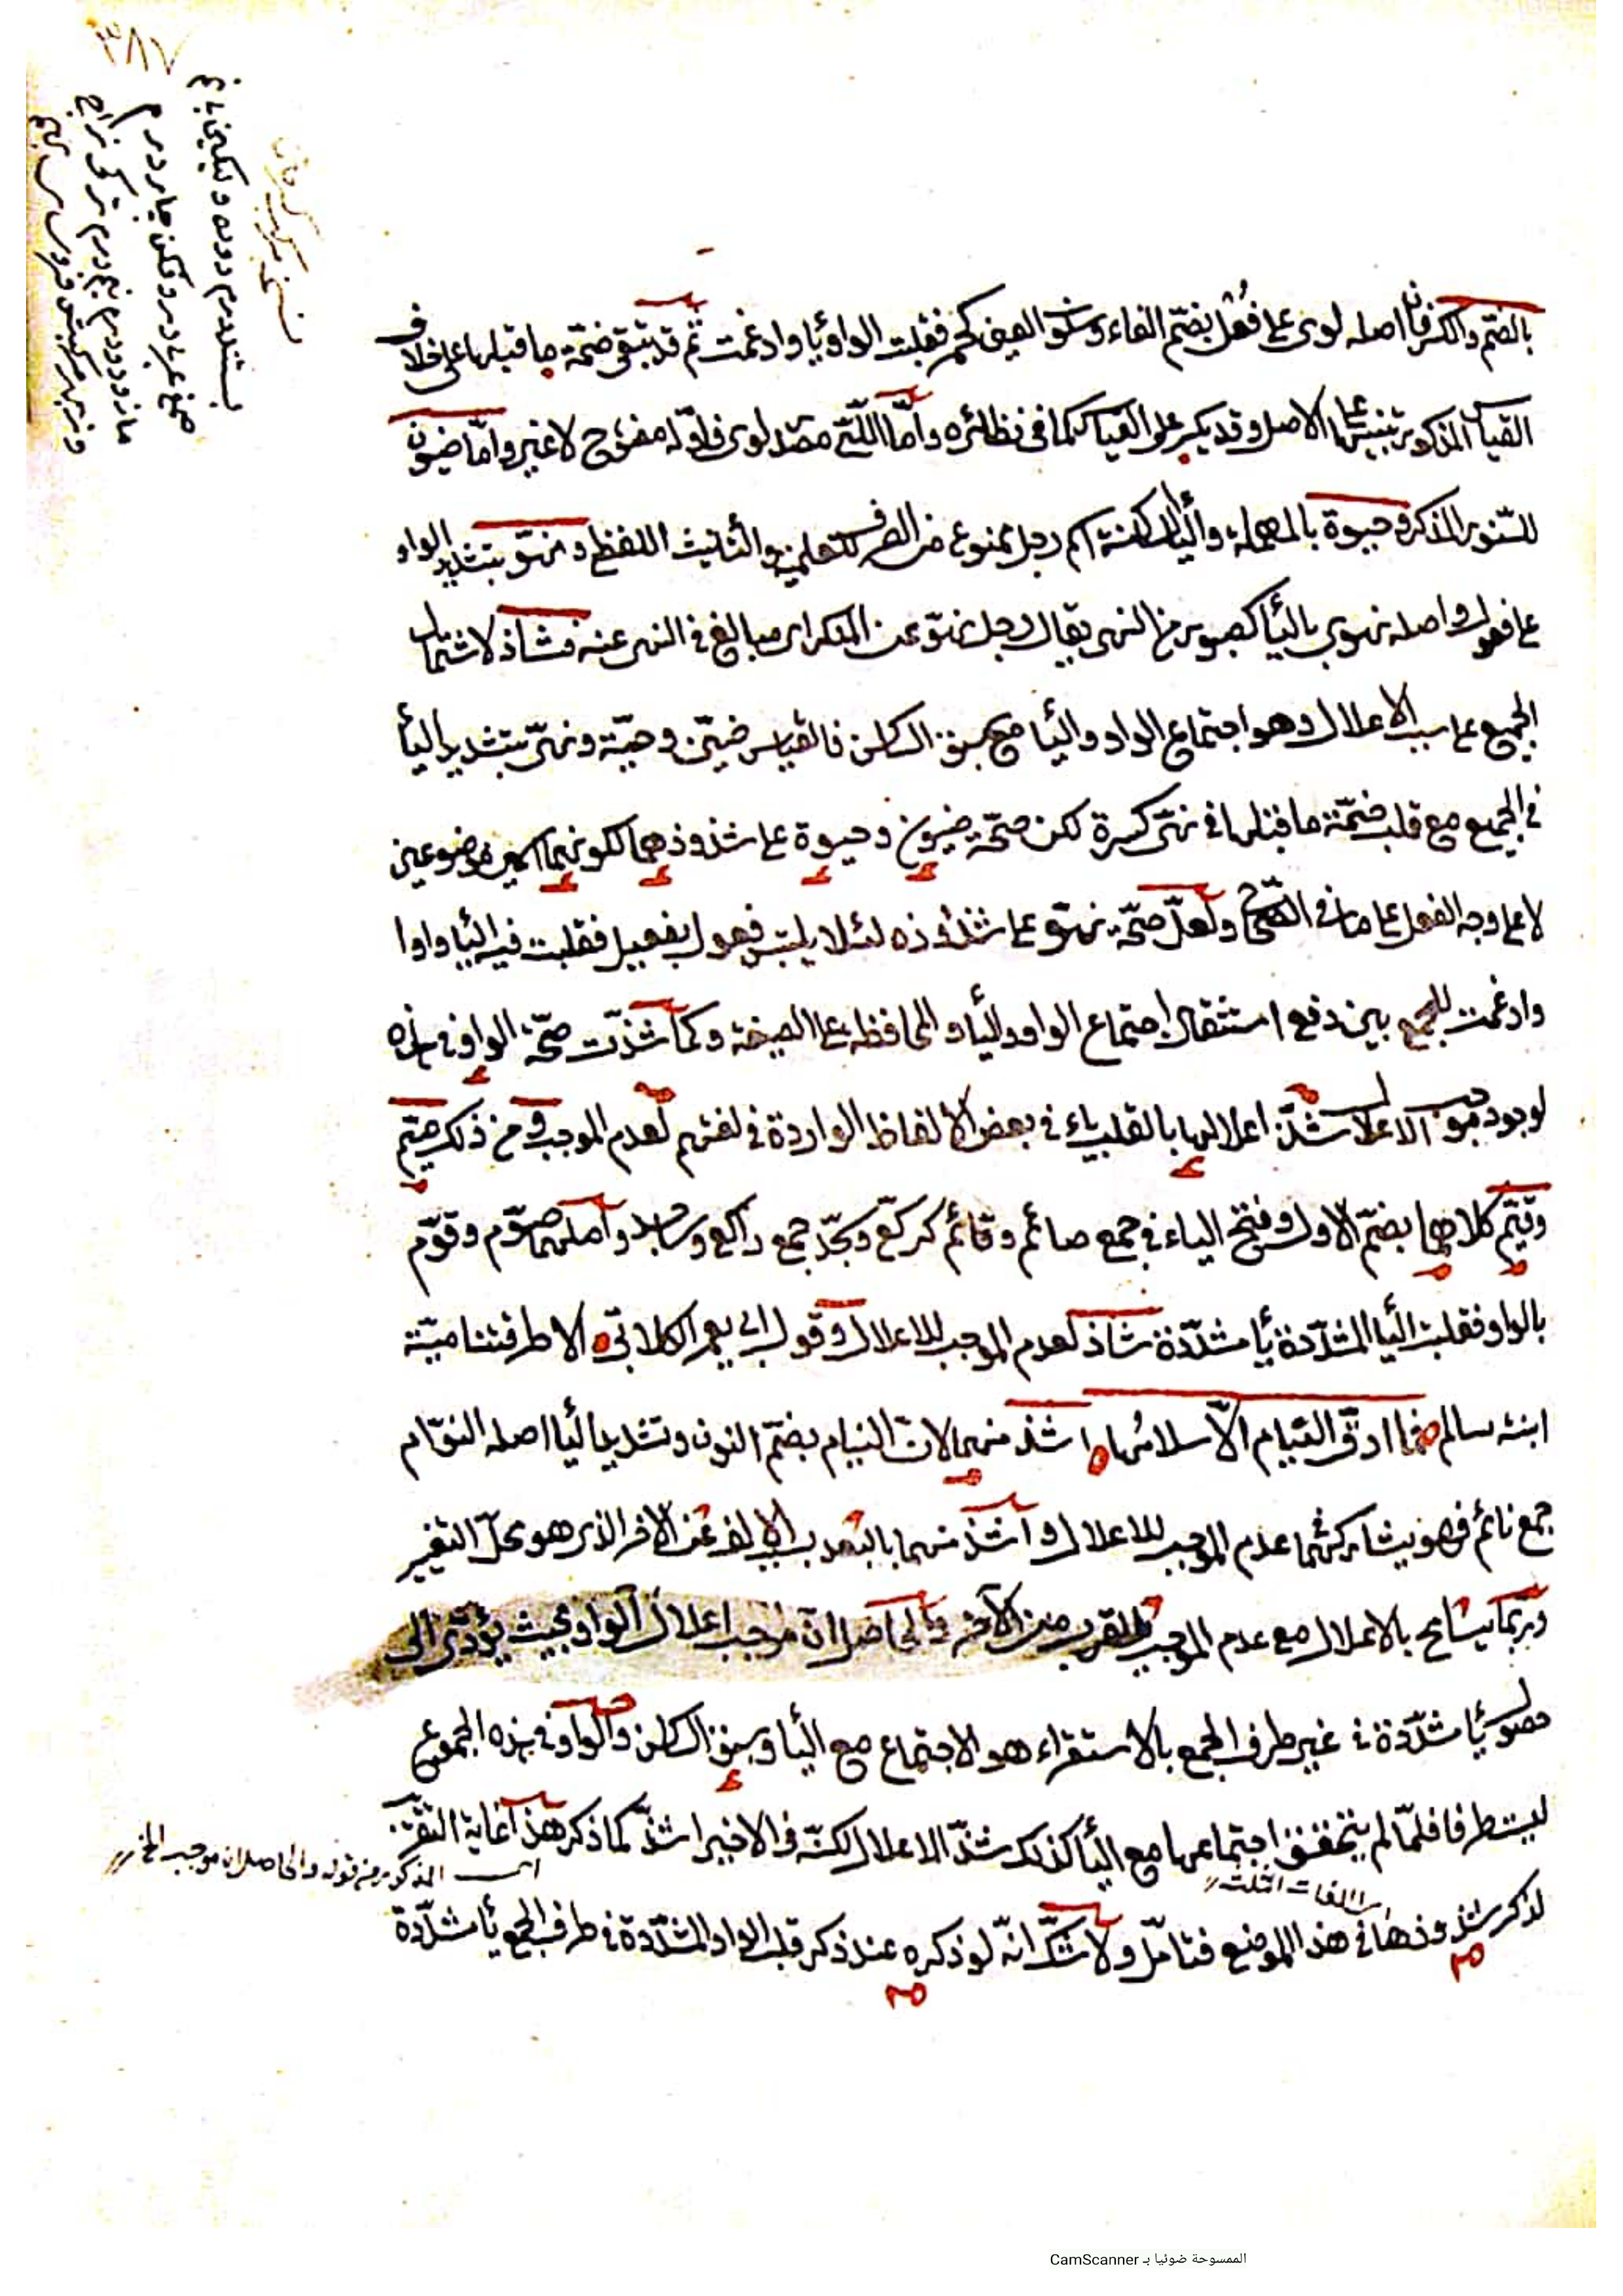 ٣٨٧
بالضمّ والكسر فانّ اصله لوى على فُعْل بضمّ الفاء وسكون العين كحمر فقلبت الواو ياء وادغمت ثمّ قد تبقى ضمّة ما قبلها على خلاف
القياس المذكور تنبيها على الاصل وقد يكسر على القياس كما في نظائره وأمّا اللّيّ مصدر لوى فاوّله مفتوح لا غير وامّا ضيون
للسّنور الذكر وحيوة بالمهملة والياء الساكنة اسم رجل ممنوع من الصرف للعلمية والتأنيث اللفظي ونهوّ بتشديد الواو
على فعول واصله نهوى بالياء كصبور من النهى يقال رجل نهوّ عن المنكر اى مبالغ في النهى عنه فشاذ لاشتمال
الجميع على سبب الاعلال وهو اجتماع الواو والياء مع سبق الساكن فالقياس ضيّن وحيّة ونهيّ بتشديد الياء
في الجميع مع قلب ضمّة ما قبلها في نهيّ كسرة لكن صحّة ضيون وحيوة على شذوذهما لكونهما اسمين موضوعين
لا على وجه الفعل على ما في الصّحاح ولعلّ صحّة نهوّ على شذوذه لئلا يلتبس فعول بفعيل فقلبت فيه الياء واوا
وادغمت للجمع بين دفع استثقال اجتماع الواو والياء والمحافظة على الصيغة وكما شذّت صحّة الواو في هذه
لوجود موجب الاعلال شذّ اعلالها بالقلب ياء في بعض الالفاظ الواردة في لغتهم لعدم الموجب و من ذلك صيّم
وقيّم كلاهما بضمّ الاول وفتح الياء في جمع صائم وقائم كركّع وسجّد جمع راكع وساجد واصلهما صوّم وقوّم
بالواو فقلبت الياء المشدّدة ياء مشدّدة شاذ لعدم الموجب للاعلال وقول ابى يعمر الكلابي الا طرقتنا ميّة
ابنة سالم فما ارّق النّيام الاّ سلامها اشذ منهما لانّ النيام بضمّ النون وتشديد الياء اصله النوّام
جمع نائم فهو يشاركهما عدم الموجب للاعلال و اشذ منهما بالبعد بسبب الالف عن الاخر الذى هو محلّ التغيير
وربّما يسامح بالاعلال مع عدم الموجب للقرب من الآخر والحاصل انّ موجب اعلال الواو بحيث يؤدّى الى
حصول ياء مشدّدة في غير طرف الجمع بالاستقراء هو الاجتماع مع الياء وسبق الساكن والواو في هذه الجموع
ليست طرفا فلمّا لم يتحقق اجتماعها مع الياء كذلك شذّ الاعلال لكنّه في الاخير اشذّ كما ذكر هذا غاية التقريب
اى المذكور من قوله والحاصل ان موجب الخ
اللغات الثلث
لذكر شذوذها في هذا الموضع فتامّل ولا شكّ انّه لو ذكره عند ذكر قلب الواو المشدّدة في طرف الجمع ياء مشدّدة
الممسوحة ضوئيا بـ CamScanner